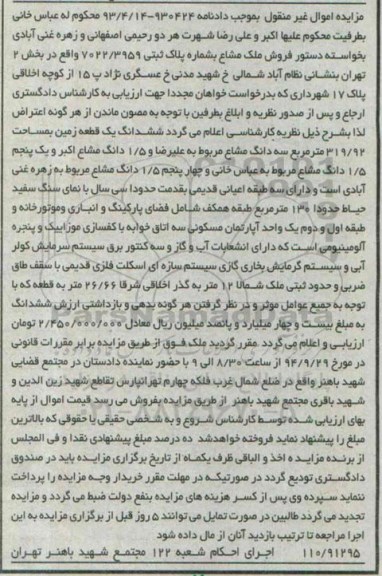 مزایده اموال غیر منقول بموجب دادنامه ۹۳۰۴۲۴-۹۳/۴/۱۴ محکوم له عباس خانی
بطرفیت محکوم علیها اکبر و علی رضا شهرت هر دو رحیمی اصفهانی و زهره غنی آبادی
بخواسته دستور فروش ملک مشاع بشماره پلاک ثبتی ۷۰۲۲/۳۹۵۹ واقع در بخش ۲
تهران بنشانی نظام آباد شمالی خ شهید مدنی خ عسگری نژاد پ ۱۵ از کوچه اخلاقی
پلاک ۱۷ شهرداری که بدرخواست خواهان مجددا جهت ارزیابی به کارشناس دادگستری
ارجاع و پس از صدور نظریه و ابلاغ بطرفین با توجه به مصون ماندن از هر گونه اعتراض
لذا بشرح ذیل نظریه کارشناسی اعلام می گردد ششدانگ یک قطعه زمین بمساحت
۳۱۹/۹۲ مترمربع سه دانگ مشاع مربوط به علیرضا و ۱/۵ دانگ مشاع اکبر و یک پنجم
۱/۵ دانگ مشاع مربوط به عباس خانی و چهار پنجم ۱/۵ دانگ مشاع مربوط به زهره غنی
آبادی است و دارای سه طبقه اعیانی قدیمی بقدمت حدودا سی سال با نمای سنگ سفید
حیاط حدودا ۱۳۰ مترمربع طبقه همکف شامل فضای پارکینگ و انباری وموتورخانه و
طبقه اول و دوم یک واحد آپارتمان مسکونی سه اتاق خوابه با کفسازی موزاییک و پنجره
آلومینیومی است که دارای انشعابات آب و گاز و سه کنتور برق سیستم سرمایش کولر
آبی و سیستم گرمایش بخاری گازی سیستم سازه ای اسکلت فلزی قدیمی با سقف طاق
ضربی و حدود ثبتی ملک شمالا ۱۲ متر به گذر اخلاقی شرقا ۲۶/۶۶ متر به قطعه که با
توجه به جمیع عوامل موثر و در نظر گرفتن هر گونه بدهی و بازداشتی ارزش ششدانگ
به مبلغ بیست و چهار میلیارد و پانصد میلیون ریال معادل ۲/۴۵۰/۰۰۰/۰۰۰ تومان
ارزیابی و اعلام می گردد مقرر گردید ملک فوق از طریق مزایده برابر مقررات قانونی
در مورخ ۹۴/۹/۲۹ از ساعت ۸/۳۰ الی ۹ با حضور نماینده دادستان در مجتمع قضایی
شهید باهنر واقع در ضلع شمال غرب فلکه چهارم تهرانپارس تقاطع شهید زین الدین و
شهید باقری مجتمع شهید باهنر از طریق مزایده بفروش می رسد قیمت اموال از پایه
بهای ارزیابی شده توسط کارشناس شروع و به شخصی حقیقی یا حقوقی که بالاترین
مبلغ را پیشنهاد نماید فروخته خواهدشد ده درصد مبلغ پیشنهادی نقدا و فی المجلس
از برنده مزایده اخذ و الباقی ظرف یکماه از تاریخ برگزاری مزایده باید در صندوق
دادگستری تودیع گردد در صورتیکه در مهلت مقرر خریدار وجه مزایده را پرداخت
ننماید سپرده وی پس از کسر هزینه های مزایده بنفع دولت ضبط می گردد و مزایده
تجدید می گردد طالبین در صورت تمایل می توانند ۵ روز قبل از برگزاری مزایده به این
اجرا مراجعه تا ترتیب بازدید آنان از مال داده شود
۱۱۰/۹۱۲۹۵ اجرای احکام شعبه ۱۲۲ مجتمع شهید باهنر تهران